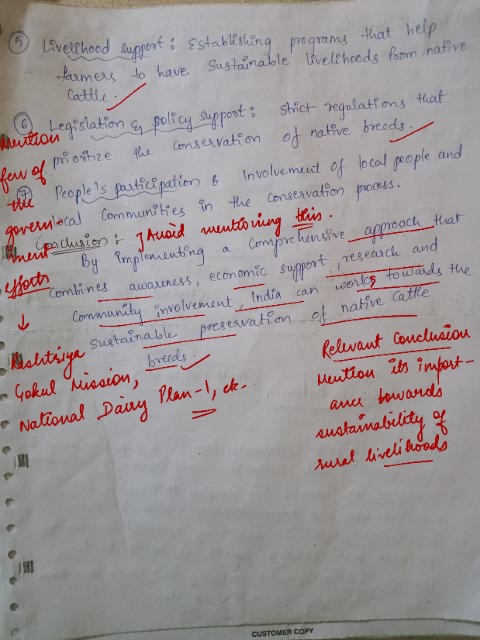 ⑤ Livelihood support : Establishing programs that help
farmers to have sustainable livelihoods from native
cattle.
⑥ Legislation & policy support : strict regulations that
prioritize the conservation of native breeds.
⑦ People's participation & Involvement of local people and
local communities in the conservation process.
Conclusion :- Avoid mentioning this.
By implementing a comprehensive approach that
combines awareness, economic support, research and
community involvement, India can works towards the
sustainable preservation of native cattle
breeds.
Mention
few of
the
govern-
ment
efforts
↓
Rashtriya
Gokul Mission,
National Dairy Plan-1, etc.
Relevant Conclusion
Mention its import-
ance towards
sustainability of
rural livelihoods
CUSTOMER COPY